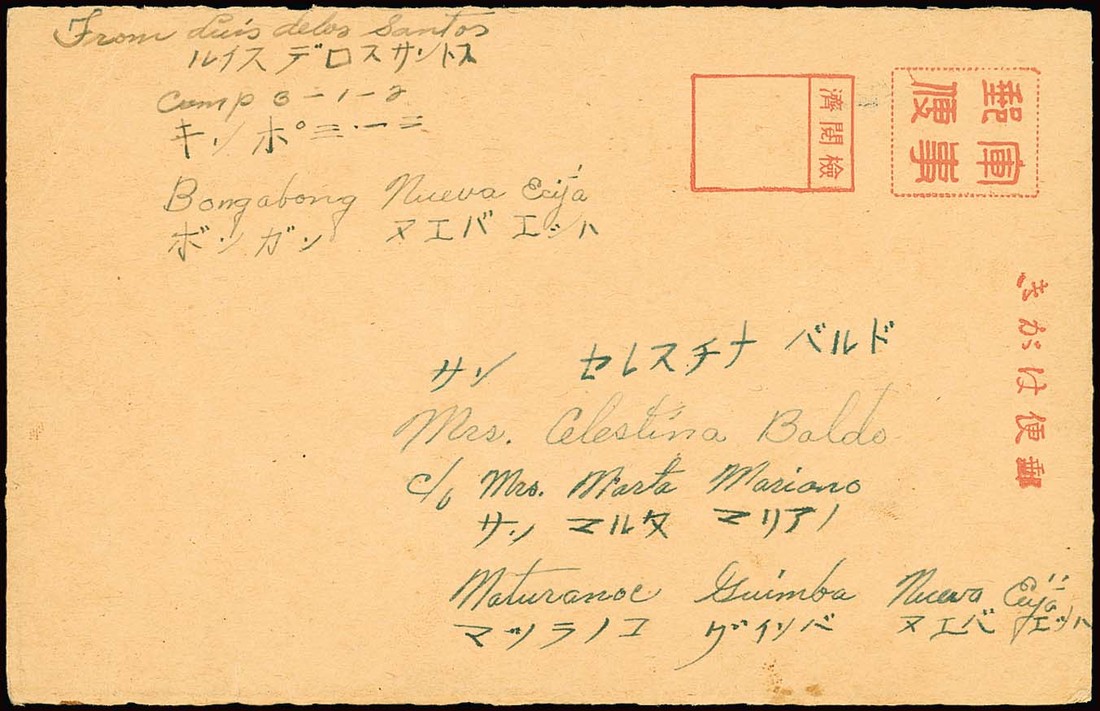 From Luis delos Santos
ルイス デロスサントス
Camp 3-1-2
キンポ゜三・一ニ
Bongabong Nueva Ecija
ボンガン ヌエバ エッハ
檢閲濟
軍事
郵便
郵便はかき
サン セレスチナ バルド
Mrs. Celestina Baldo
c/o Mrs. Marta Mariano
サン マルタ マリアノ
Maturanoc Guimba Nueva Ecija
マツラノエ グインバ ヌエバ エッハ